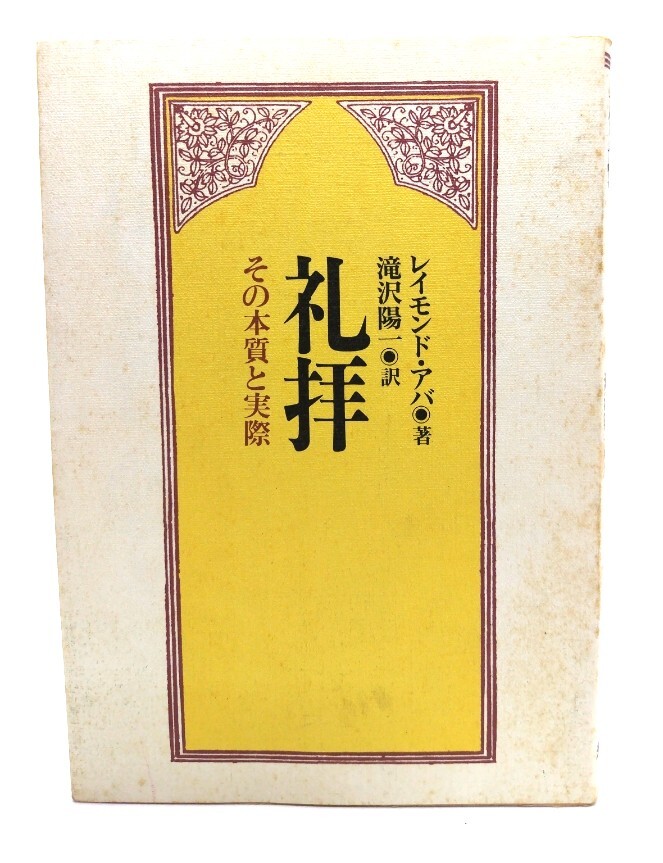 レイモンド・アバ◉著
滝沢陽一◉訳
礼拝
その本質と実際